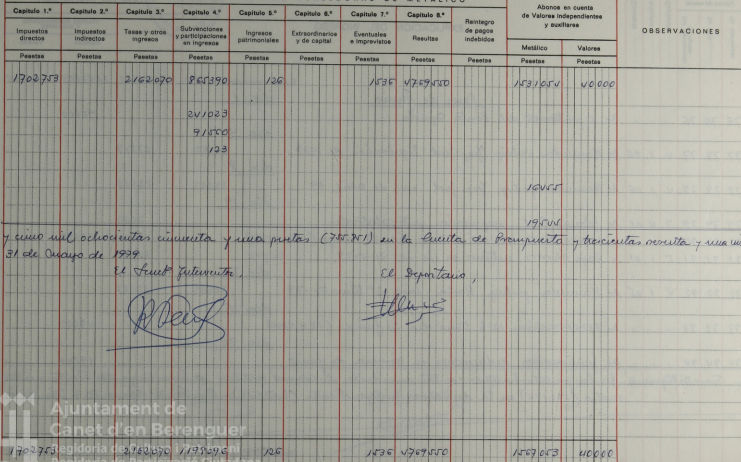 Capítulo 1.º Capítulo 2.º Capítulo 3.º Capítulo 4.º Capítulo 5.º Capítulo 6.º Capítulo 7.º Capítulo 8.º Reintegro de pagos indebidos Abonos en cuenta de Valores independientes y auxiliares OBSERVACIONES
Impuestos directos Impuestos indirectos Tasas y otros ingresos Subvenciones y participaciones en ingresos Ingresos patrimoniales Extraordinarios y de capital Eventuales e imprevistos Resultas Metálico Valores
Pesetas Pesetas Pesetas Pesetas Pesetas Pesetas Pesetas Pesetas Pesetas Pesetas Pesetas
1702753 2162070 865390 126 1536 4769550 1531054 40000
241023
91560
123
16455
19544
y cinco mil ochocientas cincuenta y una pesetas (755.851) en la Cuenta de Presupuesto y trescientas
31 de mayo de 1979
El Interventor, El Depositario,
Ajuntament de
Canet d'en Berenguer
1702753 2162070 126 1536 4769550 1567053 40000